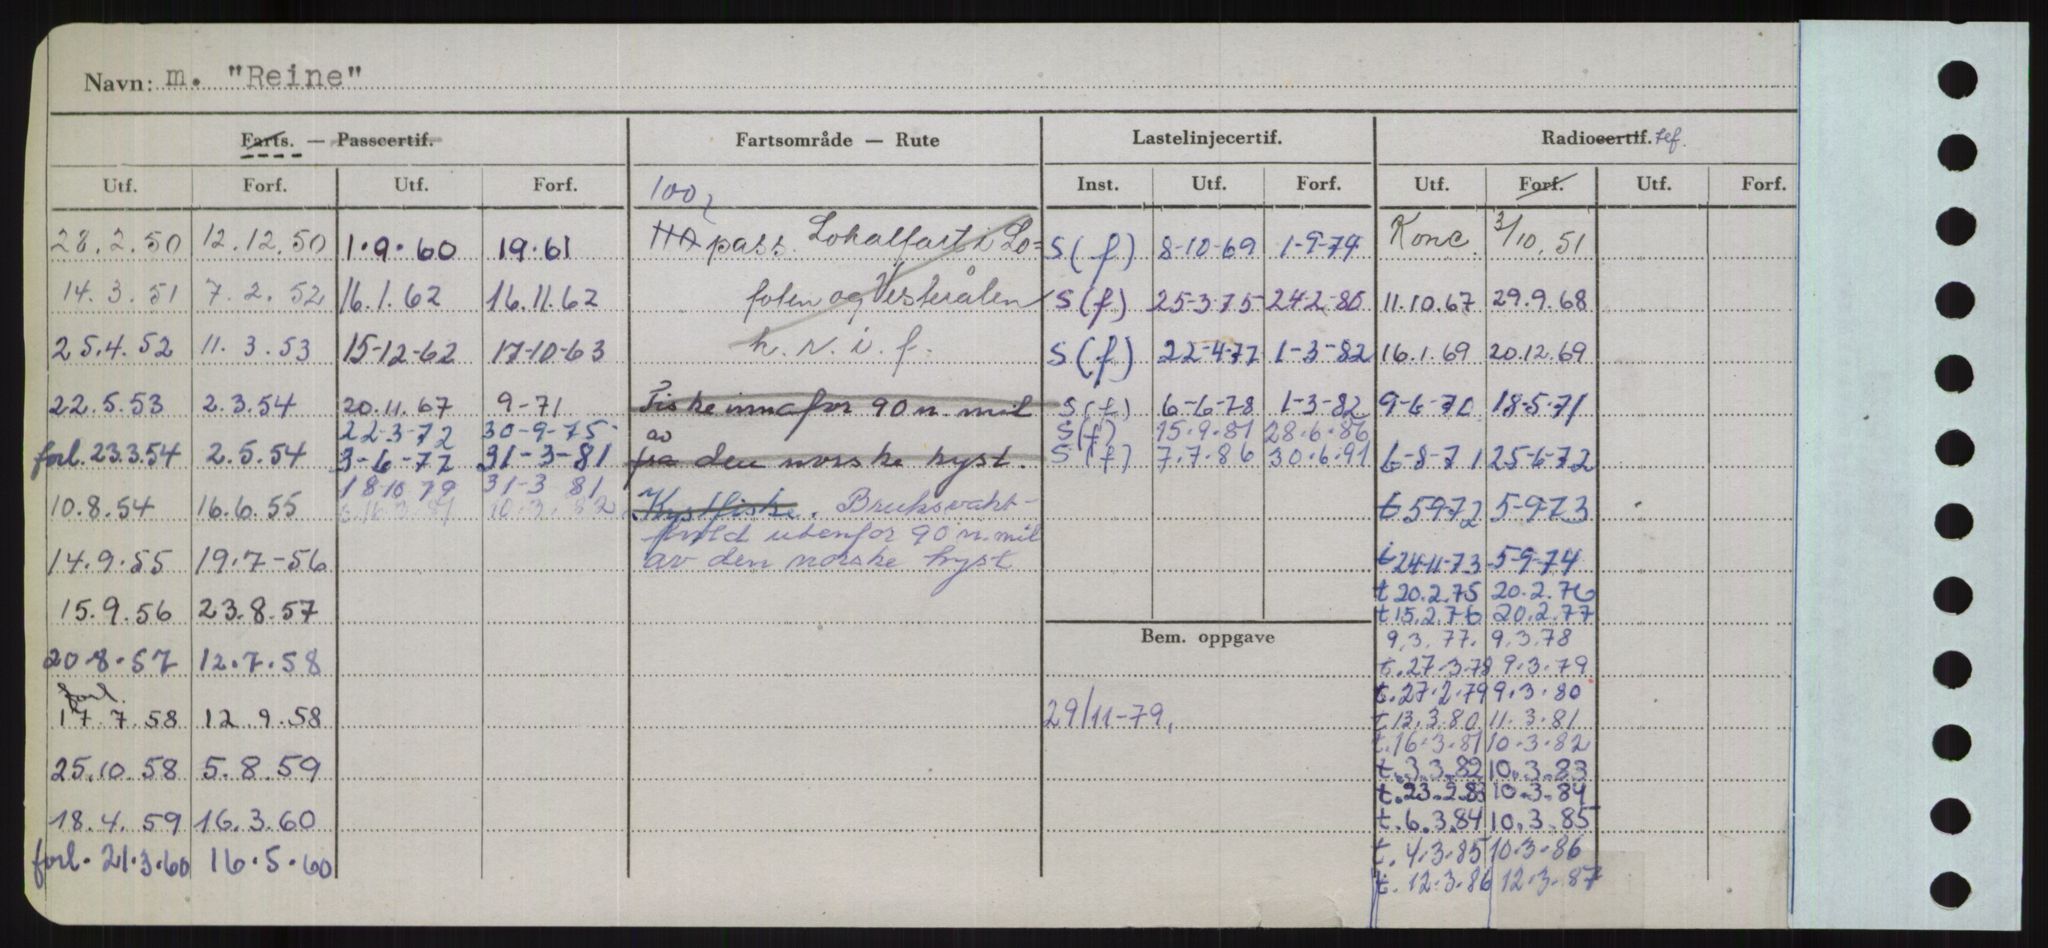 Navn: m. "Reine"
Farts. — Passcertif. Fartsområde — Rute Lastelinjecertif. Radiocertif. tef.
Utf. Forf. Utf. Forf. 100 Inst. Utf. Forf. Utf. Forf. Utf. Forf.
28.2.50 12.12.50 1.9.60 19.61 pass. Lokalfart i Lo= S(f) 8-10-69 1-9-74 Konc. 3/10.51
14.3.51 7.2.52 16.1.62 16.11.62 foten og Vesterålen S(f) 25-3-75 24-2-80 11.10.67 29.9.68
25.4.52 11.3.53 15-12-62 17-10-63 h.r.i.f. S(f) 22-4-77 1-3-82 16.1.69 20.12.69
22.5.53 2.3.54 20.11.67 9-71 Fiske innafor 90 n.mil S(f) 6-6-78 1-3-82 9-6-70 18-5-71
22-3-72 30-9-75 av S(f) 15.9.81 28.6.86
forl. 23.3.54 2.5.54 3-6-77 31-3-81 fra den norske kyst. S(f) 7.7.86 30.6.91 6-8-71 25-6-72
18-10-79 31-3 81
10.8.54 16.6.55 16.3.81 10.3.82 Kystfiske. Bruksvakt- t 5-9-72 5-9-73
hold utenfor 90 n.mil
14.9.55 19.7-56 av den norske kyst t 24-11-73 5-9-74
t 20.2.75 20.2.76
15.9.56 23.8.57 t 15.2.76 20.2.77
Bem. oppgave 9.3.77. 9.3.78
20.8.57 12.7.58 t.27.3.78 9.3.79
forl. t.27.2.79 9.3.80
17.7.58 12.9.58 29/11-79, t.13.3.80 11.3.81
t.16.3.81 10.3.82
25.10.58 5.8.59 t.3.3.82 10.3.83
t.23.2.83 10.3.84
18.4.59 16.3.60 t.6.3.84 10.3.85
forl. 21.3.60 16.5.60 t.4.3.85 10.3.86
t.12.3.86 12.3.87